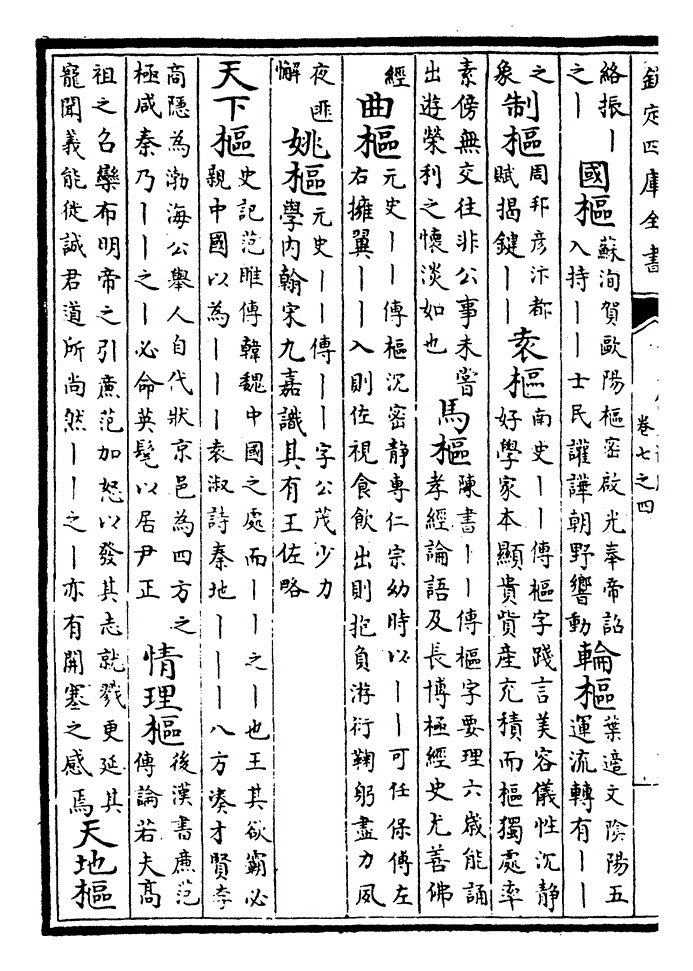 欽定四庫全書
卷七之四
絡振丨
之丨
國樞
蘇洵賀歐陽樞密啟光奉帝詔
入持丨丨士民讙譁朝野響動
輪樞
葉適文陰陽五
運流轉有丨丨
之
象
制樞
周邦彥汴都
賦揭鍵丨丨
袁樞
南史丨丨傳樞字踐言美容儀性沉静
好學家本顯貴貲產充積而樞獨處率
素傍無交往非公事未嘗
出遊榮利之懷淡如也
馬樞
陳書丨丨傳樞字要理六歲能誦
孝經論語及長博極經史尤善佛
經
曲樞
元史丨丨傳樞沉密静專仁宗幼時以丨丨可任保傅左
右擁翼丨丨入則佐視食飲出則抱負游衍鞠躬盡力夙
夜匪
懈
姚樞
元史丨丨傳丨丨字公茂少力
學内翰宋九嘉識其有王佐略
天下樞
史記范雎傳韓魏中國之處而丨丨之丨也王其欲霸必
親中國以為丨丨丨袁淑詩秦地丨丨丨八方凑才賢李
商隱為渤海公舉人自代狀京邑為四方之
極咸秦乃丨丨之丨必命英髦以居尹正
情理樞
後漢書廉范
傳論若夫髙
祖之召欒布明帝之引廉范加怒以發其志就戮更延其
寵聞義能徙誠君道所尚然丨丨之丨亦有開塞之感焉
天地樞